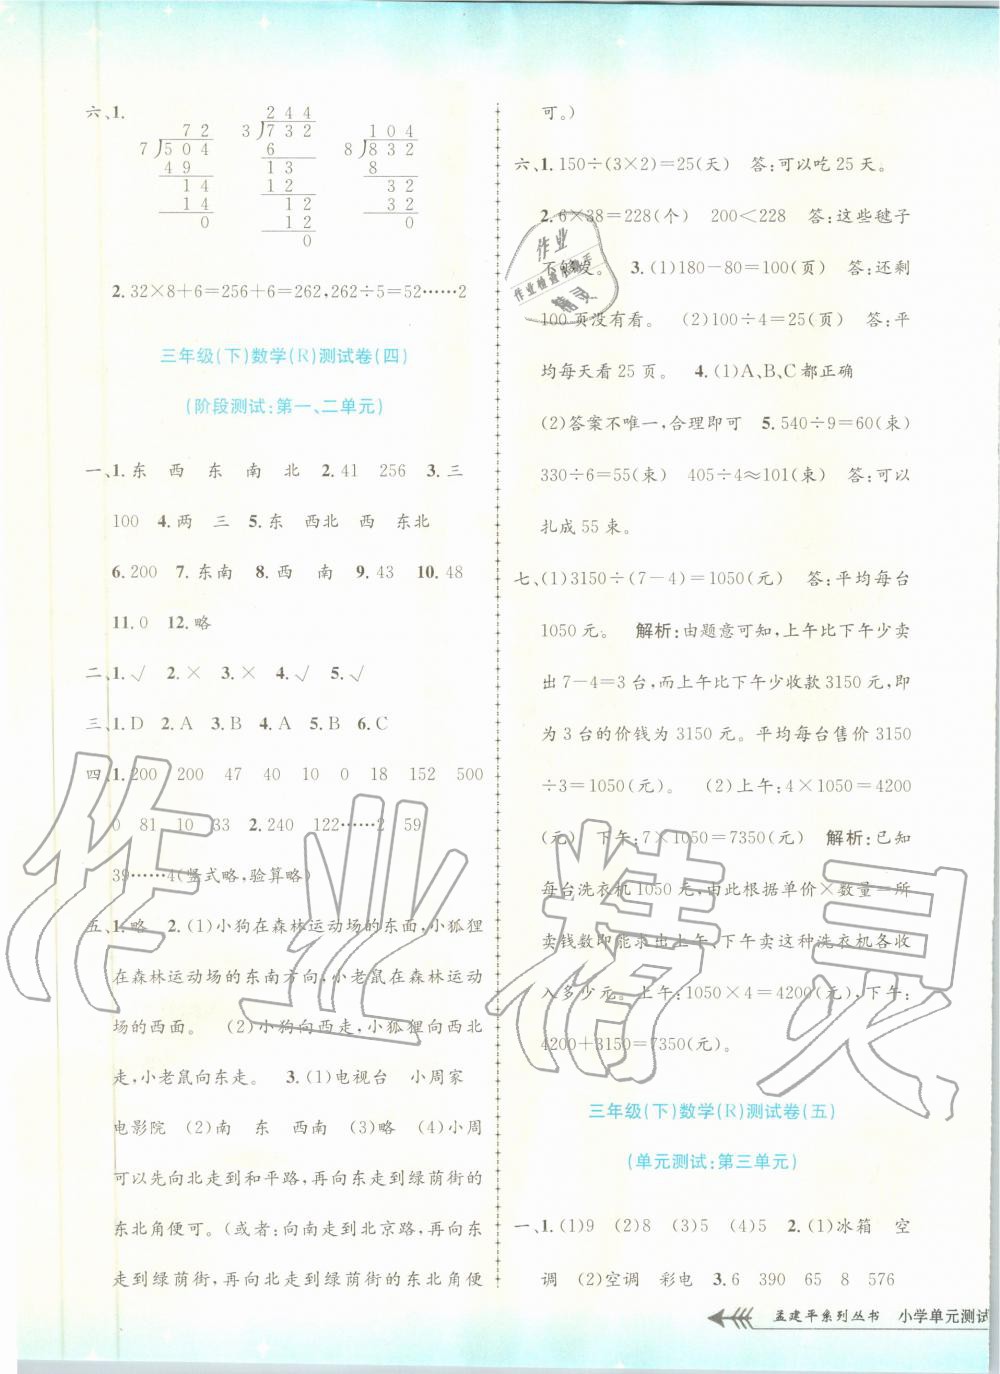 六、1.
7 2
7 5 0 4
4 9
1 4
1 4
0
2 4 4
3 7 3 2
6
1 3
1 2
1 2
1 2
0
1 0 4
8 8 3 2
8
3 2
3 2
0
2. 32×8+6=256+6=262,262÷5=52……2
三年级(下)数学(R)测试卷(四)
(阶段测试:第一、二单元)
一、1. 东 西 东 南 北 2. 41 256 3. 三
100 4. 两 三 5. 东 西北 西 东北
6. 200 7. 东南 8. 西 南 9. 43 10. 48
11. 0 12. 略
二、1. √ 2. × 3. × 4. √ 5. √
三、1. D 2. A 3. B 4. A 5. B 6. C
四、1. 200 200 47 40 10 0 18 152 500
0 81 10 33 2. 240 122……2 59
39……4(竖式略,验算略)
五、1. 略 2. (1)小狗在森林运动场的东面,小狐狸
在森林运动场的东南方向,小老鼠在森林运动
场的西面。 (2)小狗向西走,小狐狸向西北
走,小老鼠向东走。 3. (1)电视台 小周家
电影院 (2)南 东 西南 (3)略 (4)小周
可以先向北走到和平路,再向西走到绿荫街的
东北角便可。(或者:向南走到北京路,再向东
走到绿荫街,再向北走到绿荫街的东北角便
可。)
六、1. 150÷(3×2)=25(天) 答:可以吃25天。
2. 6×38=228(个) 200<228 答:这些毽子
不够发。 3. (1)180-80=100(页) 答:还剩
100页没有看。 (2)100÷4=25(页) 答:平
均每天看25页。 4. (1)A、B、C都正确
(2)答案不唯一,合理即可 5. 540÷9=60(束)
330÷6=55(束) 405÷4≈101(束) 答:可以
扎成55束。
七、(1)3150÷(7-4)=1050(元) 答:平均每台
1050元。 解析:由题意可知,上午比下午少卖
出7-4=3台,而上午比下午少收款3150元,即
为3台的价钱为3150元。平均每台售价3150
÷3=1050(元)。 (2)上午:4×1050=4200
(元) 下午:7×1050=7350(元) 解析:已知
每台洗衣机1050元,由此根据单价×数量=所
卖钱数即能求出上午、下午卖这种洗衣机各收
入多少元。上午:1050×4=4200(元),下午:
4200+3150=7350(元)。
三年级(下)数学(R)测试卷(五)
(单元测试:第三单元)
一、1. (1)9 (2)8 (3)5 (4)5 2. (1)冰箱 空
调 (2)空调 彩电 3. 6 390 65 8 576
孟建平系列丛书 小学单元测试
作业精灵
作业
精灵